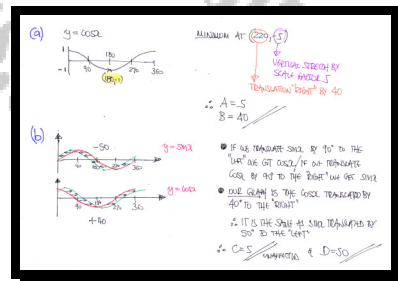 (a) y = cosx
MINIMUM AT (220, -5)
1
180
-1
90
270
360
(180,-1)
VERTICAL STRETCH BY
SCALE FACTOR 5
TRANSLATION "RIGHT" BY 40
∴ A = 5
B = 40
(b)
-50
y = sinx
90 180 270 360
y = cosx
90 180 270 360
+40
• IF WE TRANSLATE SINX BY 90° TO THE
"LEFT" WE GET COSX / IF WE TRANSLATE
COSX BY 90° TO THE "RIGHT" WE GET SINX
• OUR GRAPH IS THE COSX TRANSLATED BY
40° TO THE "RIGHT"
∴ IT IS THE SAME AS SINX TRANSLATED BY
50° TO THE "LEFT"
∴ C = 5 & D = 50
UNAFFECTED